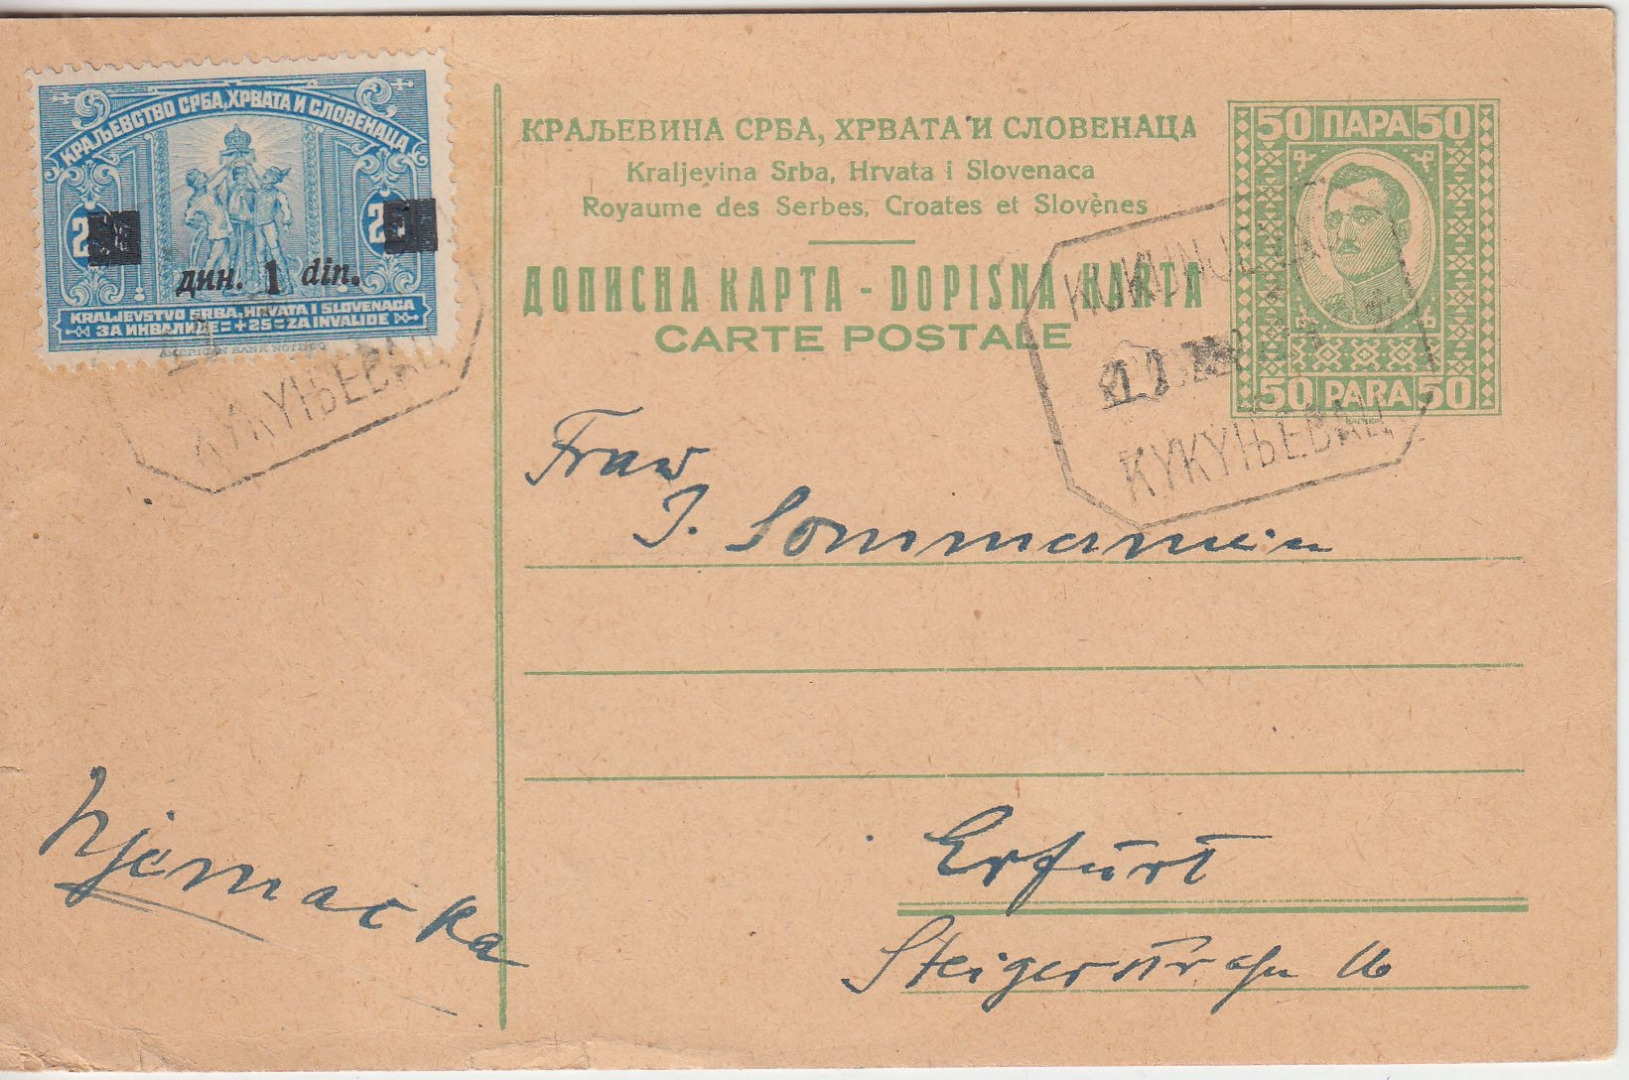 КРАЉЕВСТВО СРБА, ХРВАТА И СЛОВЕНАЦА
25
дин. 1 din.
KRALJEVSTVO SRBA, HRVATA I SLOVENACA
ЗА ИНВАЛИДЕ=+25=ZA INVALIDE
AMERICAN BANK NOTE CO
КУКУЊЕВАЦ
КРАЉЕВИНА СРБА, ХРВАТА И СЛОВЕНАЦА
Kraljevina Srba, Hrvata i Slovenaca
Royaume des Serbes, Croates et Slovènes
ДОПИСНА КАРТА - DOPISNA KARTA
CARTE POSTALE
50 ПАРА 50
50 PARA 50
KUKUNJEVAC
КУКУЊЕВАЦ
Frau
J. Sommermeier
Erfurt
Steigerstraße 16
Njemačka